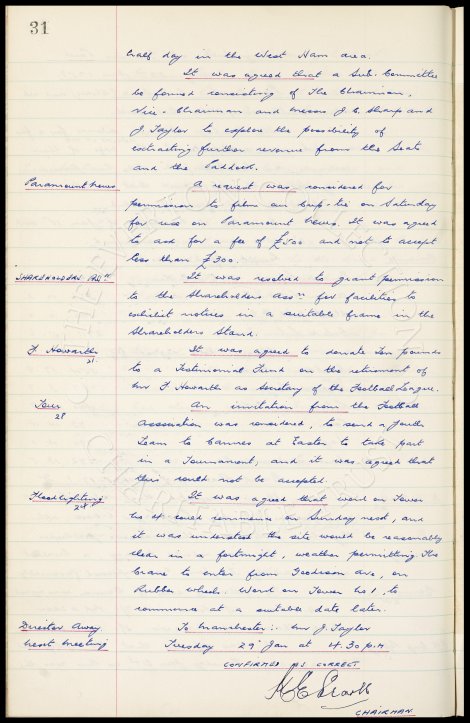 31
half day in the West Ham area.
It was agreed that a Sub-Committee
be formed consisting of The Chairman,
Vice-Chairman and Messrs J. C. Sharp and
J Taylor to explore the possibility of
extracting further revenue from the Seats
and the Paddock.
Paramount News
A request was considered for
permission to film our Cup-tie on Saturday
for use on Paramount News. It was agreed
to ask for a fee of £500 and not to accept
less than £300.
SHAREHOLDERS ASSN
It was resolved to grant permission
to the Shareholders Assn for facilities to
exhibit notices in a suitable frame in the
Shareholders Stand.
F. Howarth
21.
It was agreed to donate Ten pounds
to a Testimonial Fund on the retirement of
Mr F Howarth as Secretary of the Football League.
Tour
28
An invitation from the Football
Association was considered, to send a Youth
Team to Cannes at Easter to take part
in a Tournament, and it was agreed that
this could not be accepted.
Floodlighting
28
It was agreed that work on Tower
No 4 could commence on Sunday next, and
it was understood the site would be reasonably
clear in a fortnight, weather permitting The
Crane to enter from Goodison Ave, on
Rubber wheels. Work on Tower No 1 to
commence at a suitable date later.
Director Away
To Manchester: Mr J. Taylor
Next Meeting
Tuesday 29 Jan at 4.30 p.m
CONFIRMED AS CORRECT
CHAIRMAN